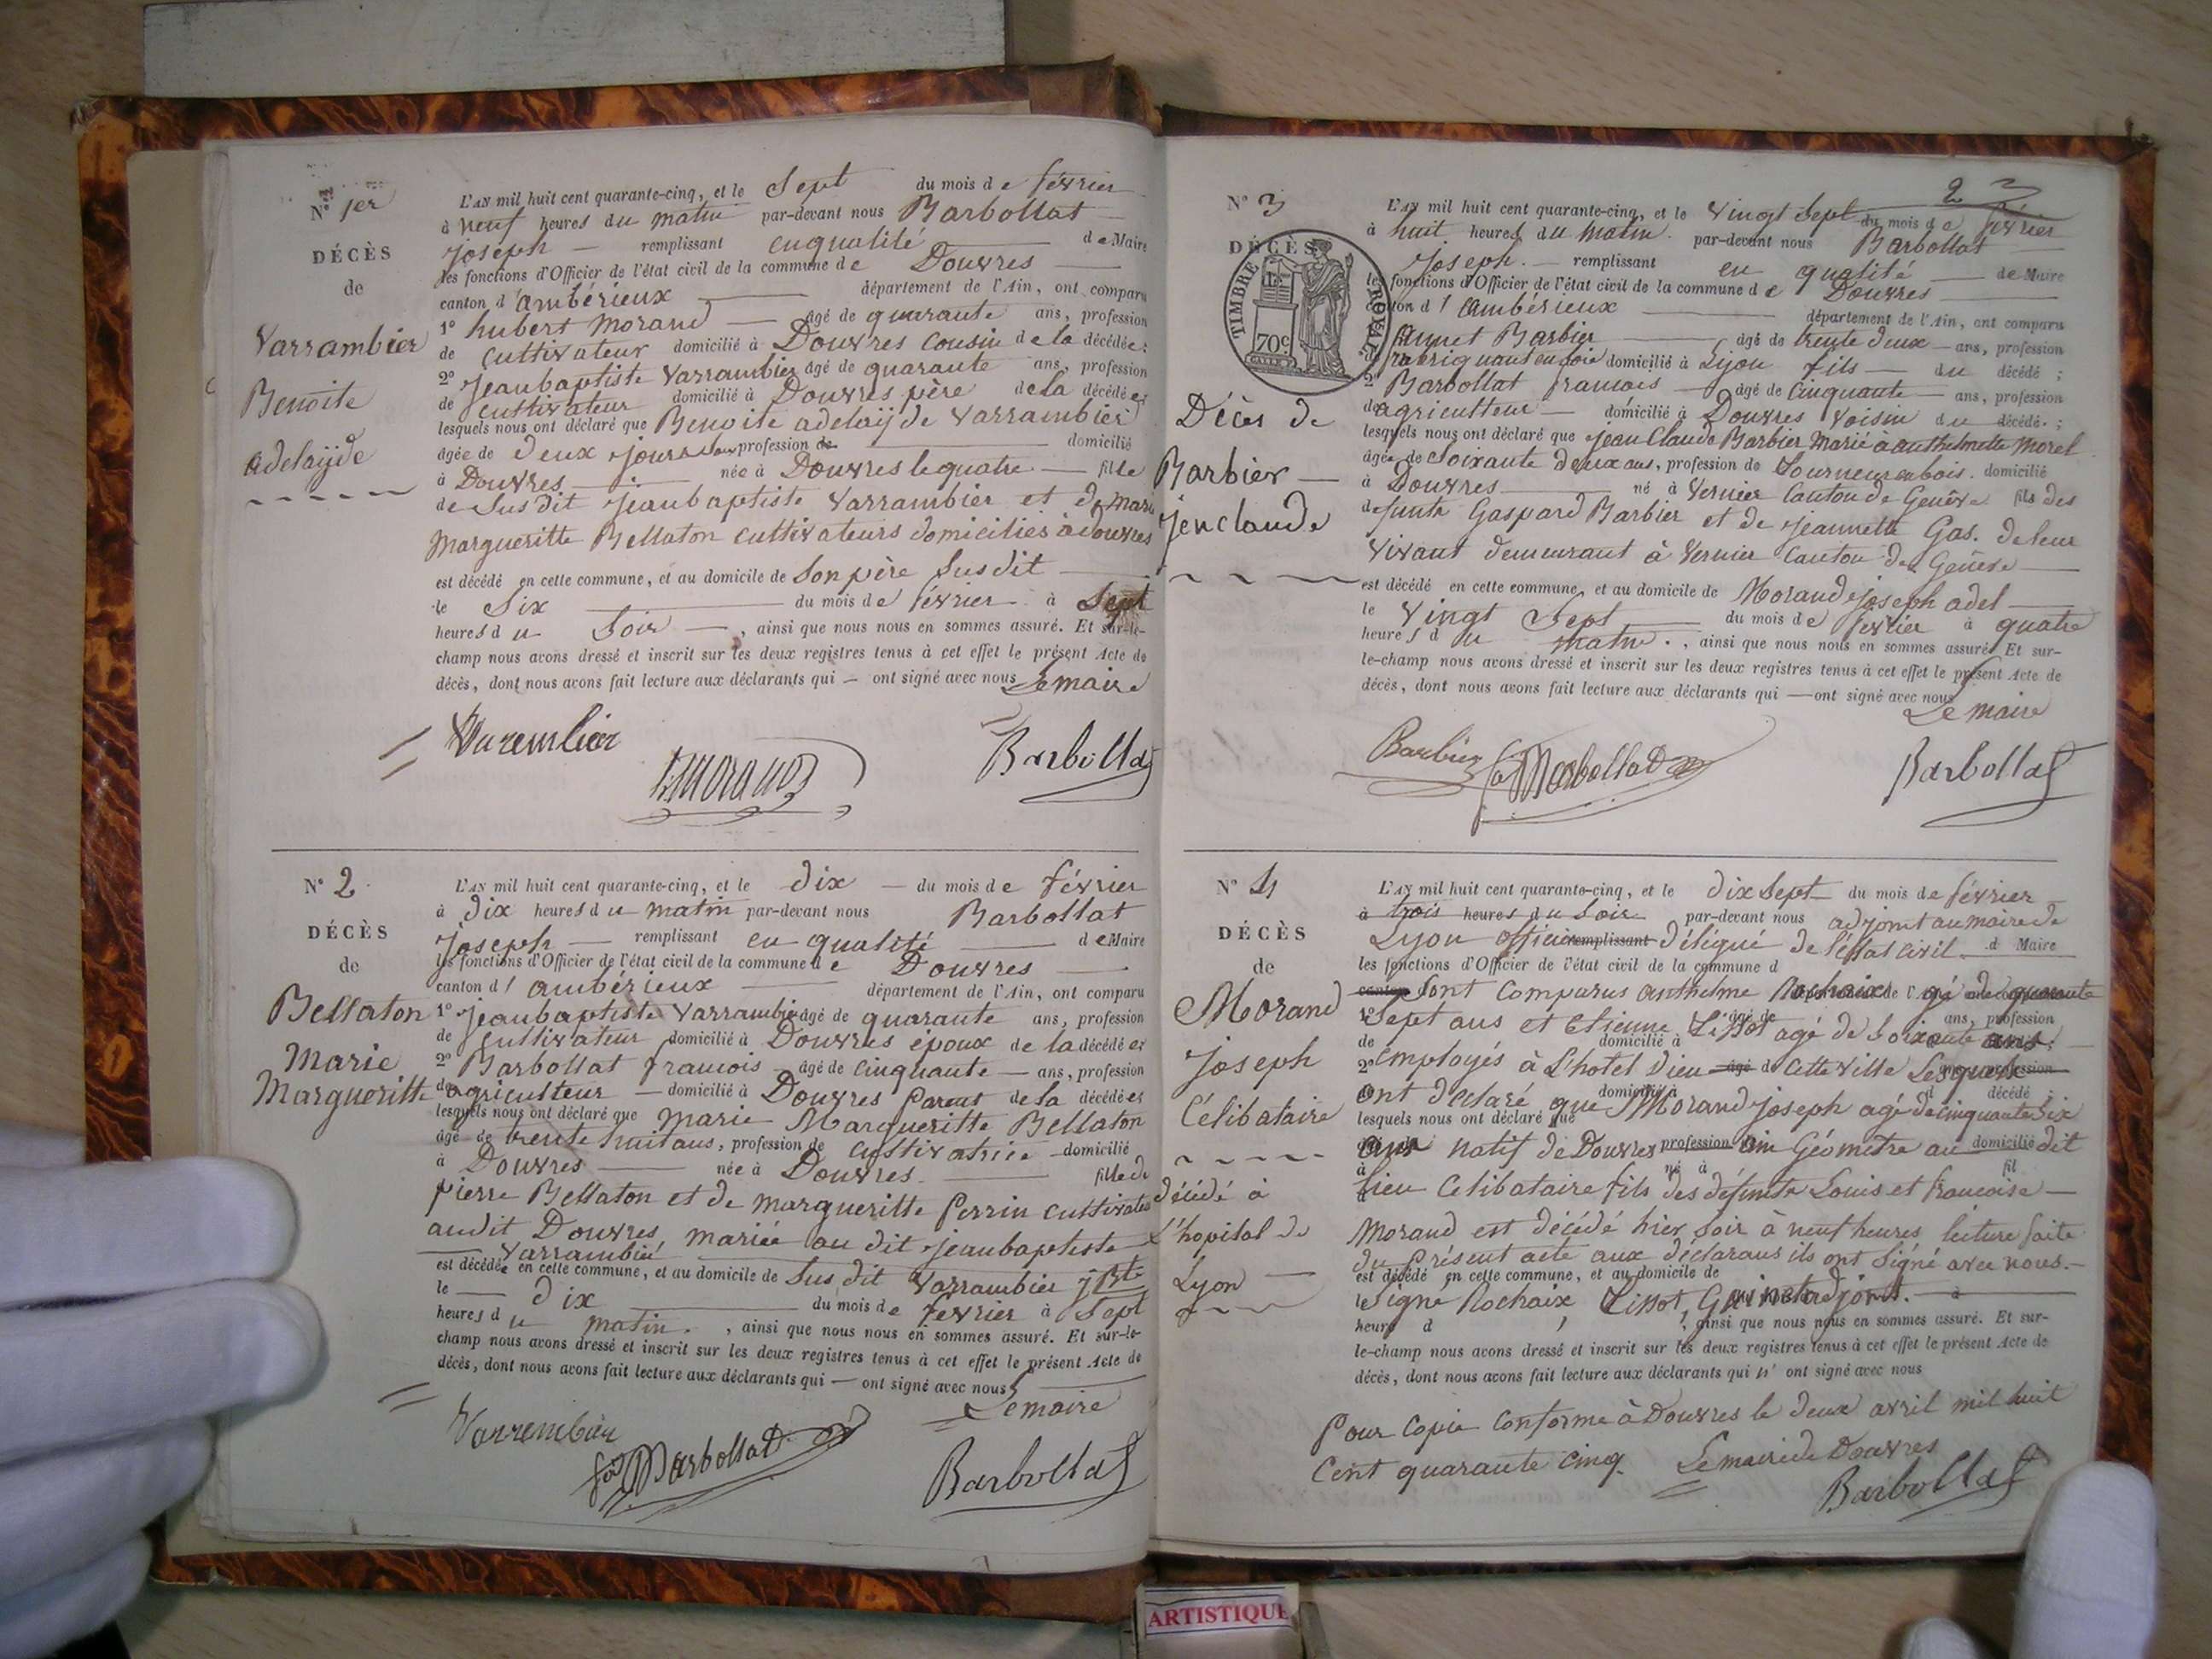 N° 1er
DÉCÈS
de
Varrambier
Benoite
adelaÿde
L'AN mil huit cent quarante-cinq, et le Sept du mois de février
à neuf heures du matin par-devant nous Barbollat
joseph remplissant en qualité de Maire
les fonctions d'Officier de l'état civil de la commune de Douvres
canton d'ambérieux département de l'Ain, ont comparu
1° hubert Morand âgé de quarante ans, profession
de cultivateur domicilié à Douvres cousin de la décédée;
2° jeanbaptiste Varrambier âgé de quarante ans, profession
de cultivateur domicilié à Douvres père de la décédée;
lesquels nous ont déclaré que Benoite adelaÿde Varrambier
âgée de deux jours profession de domicilié
à Douvres née à Douvres le quatre fille
de Susdit jeanbaptiste Varrambier et de marie
Margueritte Bellaton cultivateurs domiciliés à douvres
est décédé en cette commune, et au domicile de Son père Susdit
le Six du mois de février à Sept
heures du Soir, ainsi que nous nous en sommes assuré. Et sur-le-
champ nous avons dressé et inscrit sur les deux registres tenus à cet effet le présent Acte de
décès, dont nous avons fait lecture aux déclarants qui ont signé avec nous Le maire
Varembier
hmorand
Barbollat
N° 2
DÉCÈS
de
Bellaton
Marie
Margueritte
L'AN mil huit cent quarante-cinq, et le dix du mois de février
à dix heures du matin par-devant nous Barbollat
joseph remplissant en qualité de Maire
les fonctions d'Officier de l'état civil de la commune de Douvres
canton d'ambérieux département de l'Ain, ont comparu
1° jeanbaptiste Varrambier âgé de quarante ans, profession
de cultivateur domicilié à Douvres époux de la décédée;
2° Barbollat francois âgé de cinquante ans, profession
de agriculteur domicilié à Douvres Parent de la décédée;
lesquels nous ont déclaré que Marie Margueritte Bellaton
âgé de trente huit ans, profession de cultivatrice domicilié
à Douvres née à Douvres fille de
pierre Bellaton et de margueritte Perrin cultivateurs
audit Douvres, mariée au dit jeanbaptiste
Varrambier
est décédée en cette commune, et au domicile de Sus dit Varrambier j Bte
le dix du mois de février à Sept
heures du matin, ainsi que nous nous en sommes assuré. Et sur-le-
champ nous avons dressé et inscrit sur les deux registres tenus à cet effet le présent Acte de
décès, dont nous avons fait lecture aux déclarants qui ont signé avec nous
Le maire
Varrembier
Barbollat
Barbollat
2 3
N° 3
DÉCÈS
TIMBRE ROYAL
70c
Décès de
Barbier
jenclaude
L'AN mil huit cent quarante-cinq, et le vingt Sept du mois de février
à huit heures du matin par-devant nous Barbollat
Joseph remplissant en qualité de Maire
les fonctions d'Officier de l'état civil de la commune de Douvres
canton d'ambérieux département de l'Ain, ont comparu
Barbier âgé de trente deux ans, profession
fabriquant en Soie domicilié à Lyon fils du décédé;
2° Barbollat francois âgé de cinquante ans, profession
de agriculteur domicilié à Douvres Voisin du décédé;
lesquels nous ont déclaré que jean Claude Barbier Marié à anthelmette Morel
âgée de Soixante deux ans, profession de Tourneur en bois domicilié
à Douvres né à Vernier Canton de Genêve fils des
defunts Gaspard Barbier et de jeannette Gas. de leur
vivant demeurant à Vernier Canton de Genêve
est décédé en cette commune, et au domicile de Morand joseph adel
le Vingt Sept du mois de février à quatre
heures du matin, ainsi que nous nous en sommes assuré. Et sur-
le-champ nous avons dressé et inscrit sur les deux registres tenus à cet effet le présent Acte de
décès, dont nous avons fait lecture aux déclarants qui ont signé avec nous
Le maire
Barbier
Barbollat
Barbollat
N° 4
DÉCÈS
de
Morand
Joseph
Célibataire
décédé à
L'hopital de
Lyon
L'AN mil huit cent quarante-cinq, et le dix Sept du mois de février
à trois heures du Soir par-devant nous adjoint au maire de
Lyon officier remplissant déligué de l'état civil. d Maire
les fonctions d'Officier de l'état civil de la commune d
canton Sont comparus anthelme Rochaix agé de quarante
1° Sept ans et Etienne Tissot agé de Soixante ans, profession
de domicilié à
2° employés à L'hotel Dieu de Cette ville Lesquels
ont déclaré que Morand joseph agé de cinquante Six
lesquels nous ont déclaré que
ans natif de Douvres profession Géomètre au domicilié dit
lieu Célibataire fils des défunts Louis et francoise
Morand est décédé hier Soir à neuf heures lecture faite
du Présent acte aux déclarans ils ont Signé avec nous.
est décédé en cette commune, et au domicile de
le Signé Rochaix, Tissot, adjoint. à
heure d, ainsi que nous nous en sommes assuré. Et sur-
le-champ nous avons dressé et inscrit sur les deux registres tenus à cet effet le présent Acte de
décès, dont nous avons fait lecture aux déclarants qui n' ont signé avec nous
Pour Copie Conforme à Douvres le deux avril mil huit
Cent quarante cinq. Le maire de Douvres
Barbollat
ARTISTIQUE